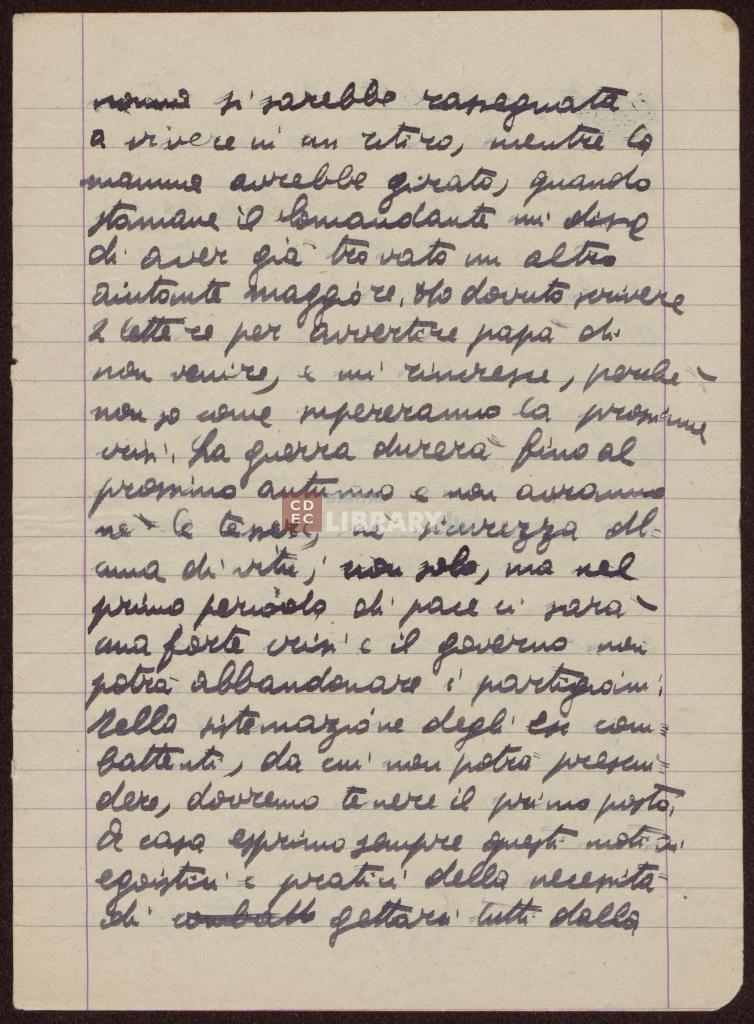 nonna si sarebbe rassegnata
a vivere in un ritiro, mentre la
mamma avrebbe girato, quando
stamane il Comandante mi disse
di aver già trovato un altro
aiutante maggiore. Ho dovuto scrivere
2 lettere per avvertire papà di
non venire, e mi rincresce, perchè
non so come supereranno la prossima
crisi. La guerra durerà fino al
prossimo autunno e non avranno
nè le tessere, nè sicurezza al-
cuna di vita; non solo, ma nel
primo periodo di pace ci sarà
una forte crisi e il governo non
potrà abbandonare i partigiani.
Nella sistemazione degli ex com=
battenti, da cui non potrà prescin=
dere, dovremo tenere il primo posto.
A casa esprimo sempre questi motivi
egoistici e pratici della necessità
di combatt gettarsi tutti dalla
CDEC LIBRARY